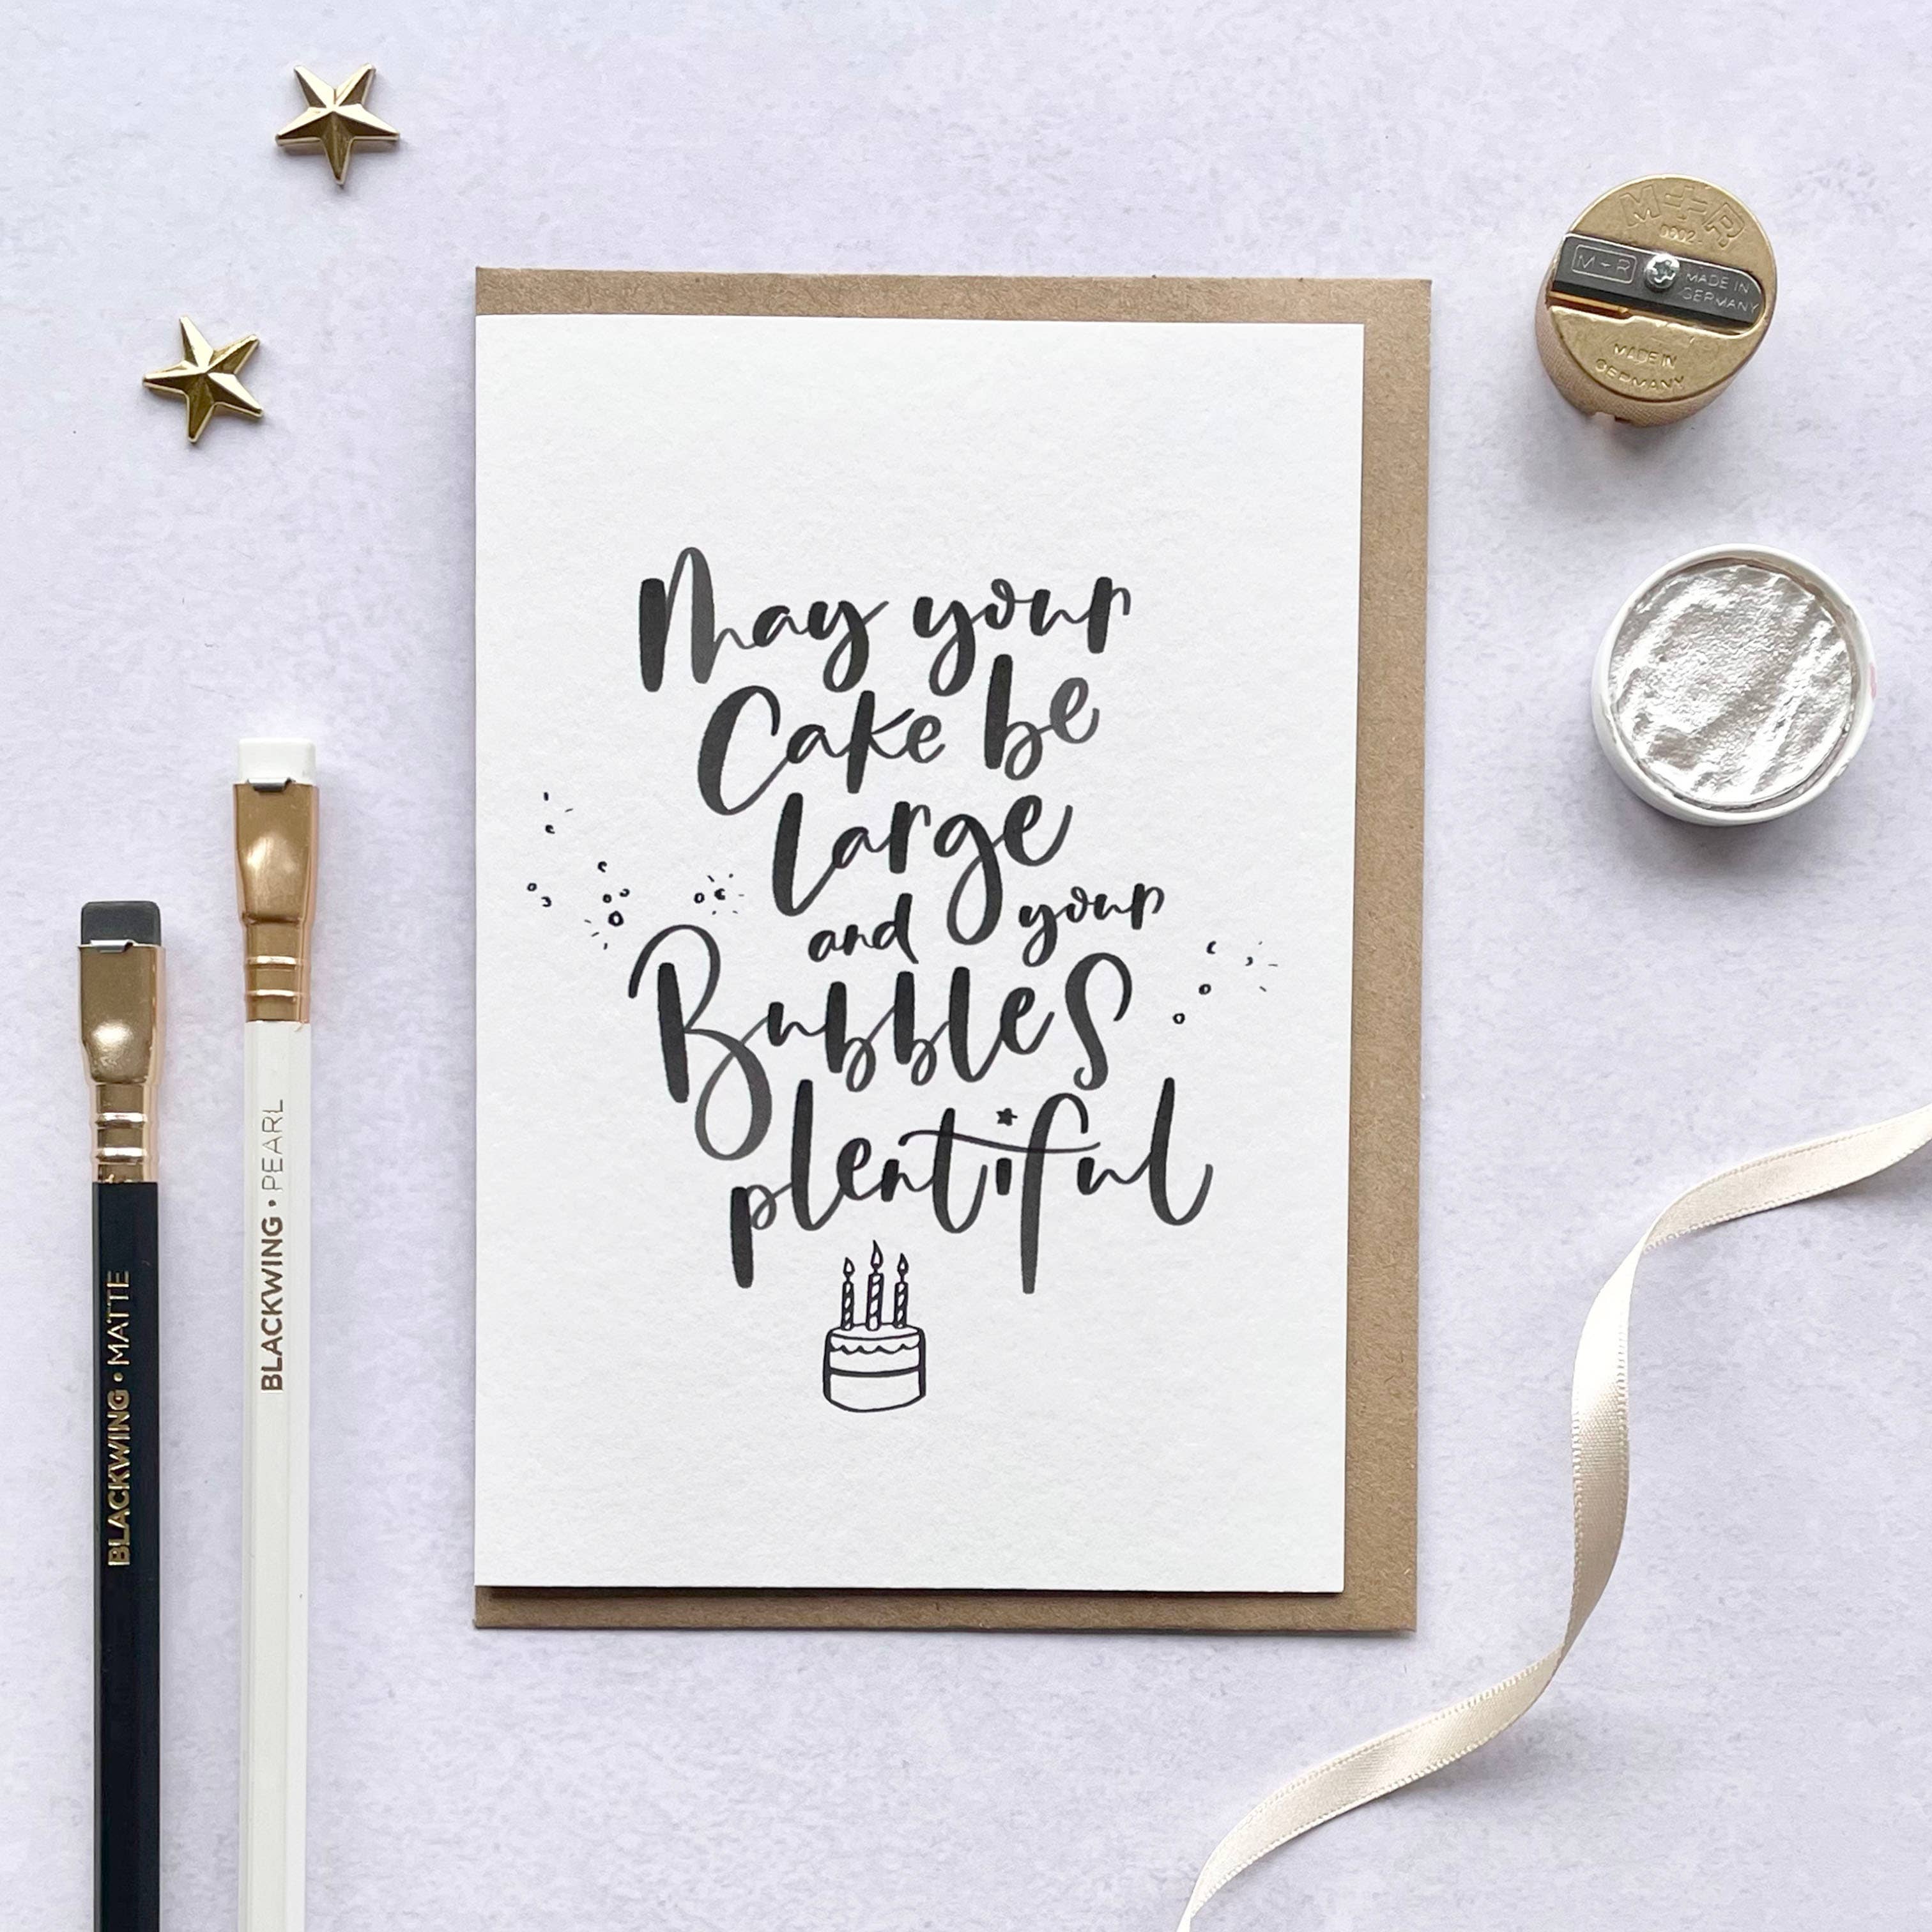 May your
Cake be
Large
and your
Bubbles
plentiful
BLACKWING • MATTE
BLACKWING • PEARL
M+R
0602
M+R
MADE IN
GERMANY
MADE IN
GERMANY